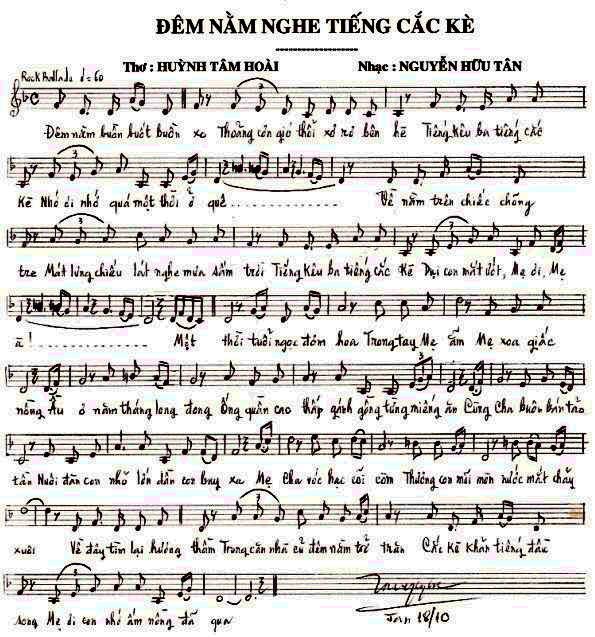 ĐÊM NẰM NGHE TIẾNG CẮC KÈ
Thơ : HUỲNH TÂM HOÀI Nhạc : NGUYỄN HỮU TÂN
Rock Ballade ♩= 60
Đêm nằm buồn buốt buồn xo Thoảng cơn gió thổi xơ rơ bên hè Tiếng kêu ba tiếng cắc
Kè Nhớ ơi nhớ quá một thời ở quê................ Về nằm trên chiếc chõng
tre Mát lưng chiều lắt nghe mưa sấm trời Tiếng kêu ba tiếng cắc Kè Dại con mắt ướt, Mẹ ơi, Mẹ
à!................ Một thời tuổi ngọc đóm hoa Trong tay Mẹ ẵm Mẹ xoa giấc
nồng Ấu ở năm tháng long đong Ống quần cao thấp gánh gồng từng miếng ăn Cùng Cha Buôn bán tảo
tần Nuôi đàn con nhỏ lớn dần con bay xa Mẹ Cha vóc hạc cỗi còm Thương con mỏi mòn nước mắt chảy
xuôi Về đây tìm lại hương thầm Trong căn nhà cũ đêm nằm trở trăn Cắc Kè khàn tiếng đầu
song Mẹ ơi con nhớ ấm nồng đã qua
Jan 18/10